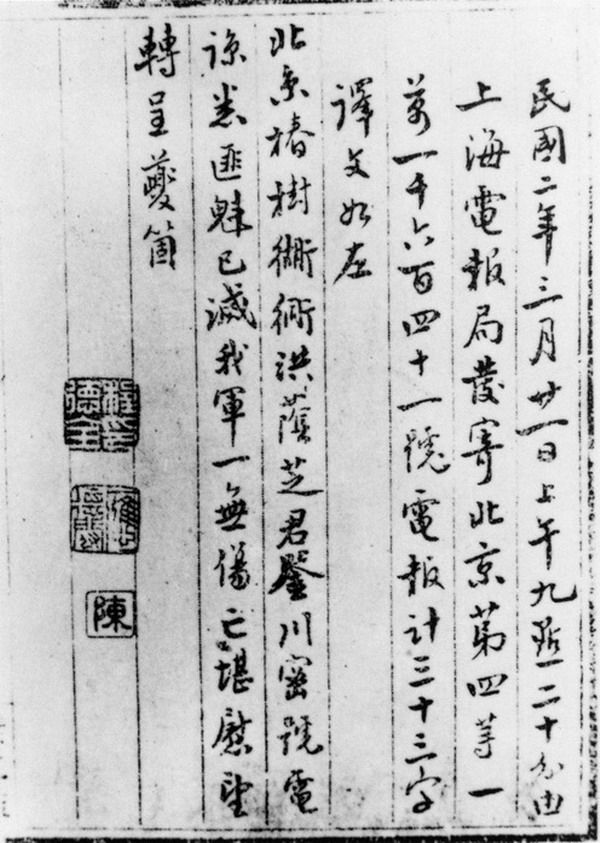 民國二年三月廿一日上午九點二十分由
上海電報局發寄北京第四等一
萬一千六百四十一號電報計三十三字
譯文如左
北京椿樹衚衕洪蔭芝君鑒川密號電
諒悉匪魁已滅我軍一無傷亡堪慰望
轉呈夔箇
程印德全
應德閎印
陳